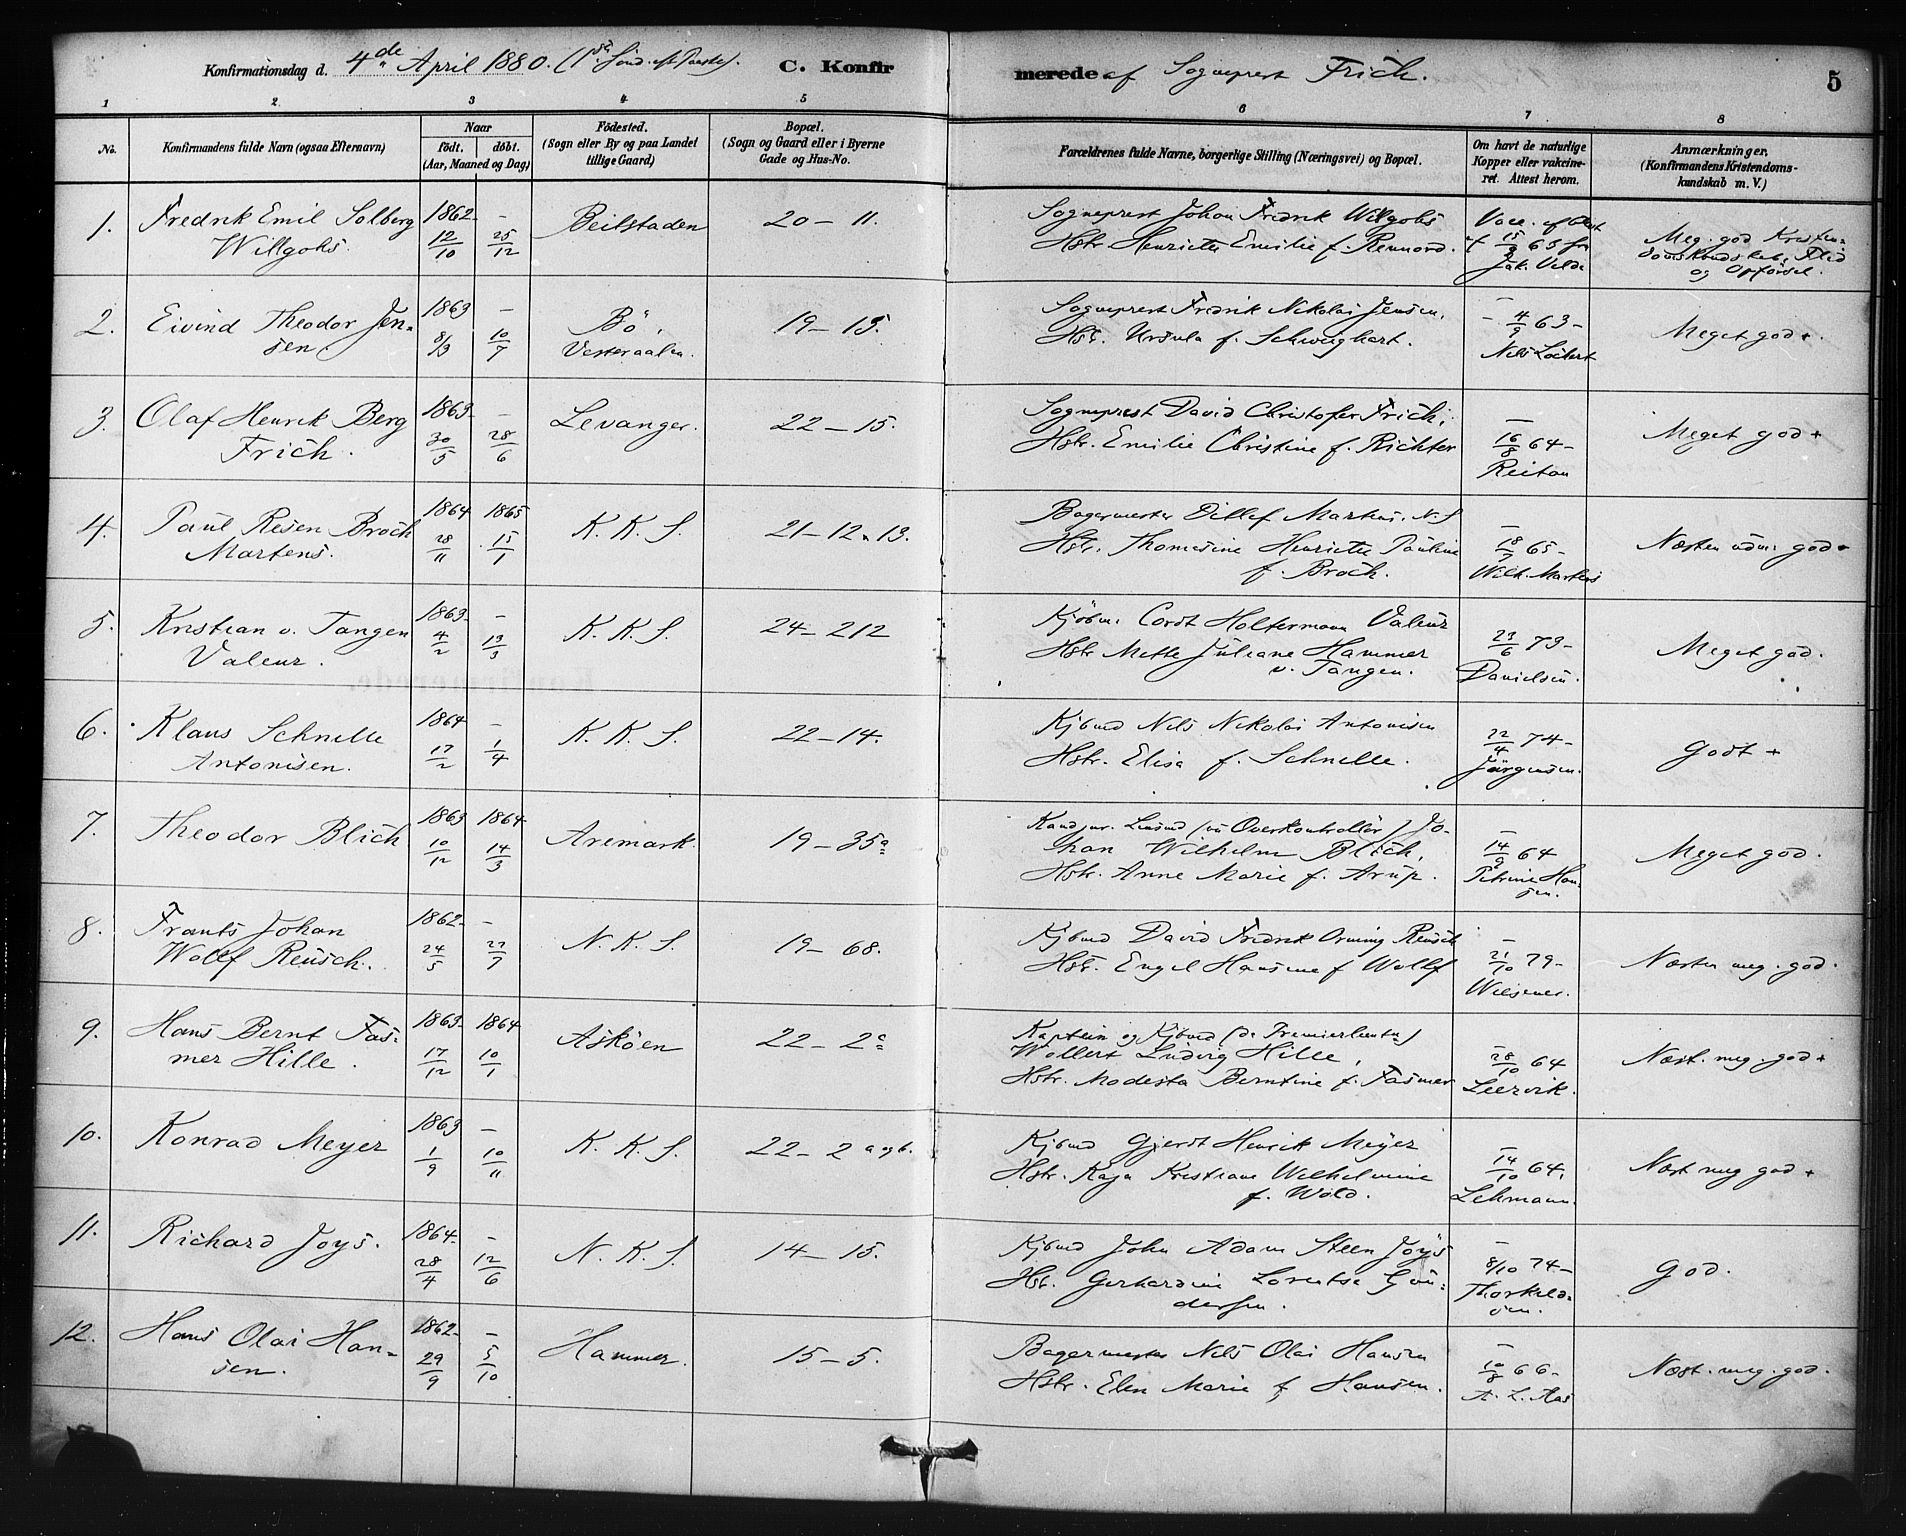 Konfirmationsdag d. 4de April 1880. (1ste Sönd. eft. Paaske). C. Konfir
merede af Sogneprest Frich. 5
1 2 3 4 5 6 7 8
No. Konfirmandens fulde Navn (ogsaa Efternavn) Naar födt. döbt. (Aar, Maaned og Dag) Födested. (Sogn eller By og paa Landet tillige Gaard) Bopæl. (Sogn og Gaard eller i Byerne Gade og Hus-No.
Forældrenes fulde Navne, borgerlige Stilling (Næringsvei) og Bopæl. Om havt de naturlige Kopper eller vakcineret. Attest herom. Anmærkninger. (Konfirmandens Kristendomskundskab m. V.)
1. Fredrik Emil Solberg 1862 - Beitstaden 20 - 11. Sogneprest Johan Fredrik Willgohs Vacc.
Willgohs. 12/10 25/12 Hstr. Henriette Emilie f. Rennord. 65 Meg. god Kristen-
domskundskab, Flid
og Opförsel.
2. Eivind Theodor Jen- 1863 - Bö, 19 - 15. Sogneprest Fredrik Nikolai Jensen, - 4/9 63 - Meget god +
sen. 8/3 10/7 Vesteraalen. Hstr. Ursula f. Schweighart. Nils Lockert
3. Olaf Henrik Berg 1863 - Levanger. 22 - 15. Sogneprest David Christofer Frich, - Meget god +
Frich. 30/5 28/6 Hstr. Emilie Christine f. Richter 16/8 64 -
Reitan
4. Paul Resen Broch 1864 1865 K. K. S. 21 - 12 & 13. Bagermester Ditlef Martens. N. S - Næsten udm. god +
Martens. 28/11 15/1 Hstr. Thomasine Henriette Pauline 18/7 65 -
f. Broch. Wilh. Martens
5. Kristian v. Tangen 1863 - K. K. S. 24 - 212 Kjöbm. Cordt Holtermann Valeur 23/6 73 - Meget god.
Valeur. 4/2 13/3 Hstr Mette Juliane Hammer
v. Tangen. Danielsen.
6. Klaus Schnelle 1864 - K. K. S. 22 - 14. Kjbmd Nils Nikolai Antonisen 22/4 74 - Godt +
Antonisen. 17/2 1/4 Hstr. Elisa f. Schnelle. Jörgensen.
7. Theodor Blich 1863 1864 Aremark 19 - 35a Kand. jur. (nu Overkontrollör) Jo- - Meget god.
10/12 14/3 han Wilhelm Blich, 14/9 64
Hstr. Anne Marie f. Arup. Petrine Han-
sen.
8. Frants Johan 1862 - N. K. S. 19 - 68. Kjbmd David Fredrik Orning Reusch - Næsten meg. god.
Wolff Reusch. 24/5 27/7 Hstr. Engel Hansine f Wolff 21/10 79 -
9. Hans Bernt Fas- 1863 1864 Asköen 22 - 2a Kaptein og Kjbmd (da Premierleutn) Næst. meg. god +
mer Hille. 17/12 10/1 Wollert Ludvig Hille, 28/10 64
Hstr. Modesta Berntine f. Fasmer Leervik.
10. Konrad Meyer 1863 - K. K. S. 22 - 2 a og b. Kjbmd Gjerdt Henrik Meyer - Næst meg god +
1/9 10/11 Hstr. Kaja Kristiane Wilhelmine 14/10 64,
f. Wold. Lehmann.
11. Richard Joys. 1864 - N. K. S. 14 - 15. Kjbmd John Adam Steen Joys - God.
28/4 12/6 Hstr. Gerhardine Lorentse Gun- 8/10 74 -
dersen. Thorkild-
sen.
12. Hans Olai Han- 1862 - Hammer. 15 - 5. Bagermester Nils Olai Hansen - Næst. meg. god.
sen. 29/9 5/10 Hstr. Elen Marie f Hansen. 10/8 66 -
A. L. Aas